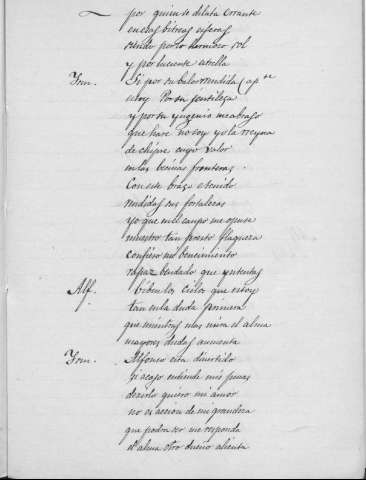 por quien se dilata errante
en esas bitreas esferas
siendo por lo hermoso sol
y por luciente estrella
Yrm. Si por su balor rendida (ap.te
estoy Por su jentileza
y por su yngenio me abraso
que hare no soy yo la Reyna
de chipre cuyo valor
en las becinas fronteras
Con este braço e tenido
rendidas sus fortalezas
yo que en el campo me ostente
muestro tan presto flaqueza
confieso mi bencimiento
rapaz bendado que yntentas
Alf. bibe los cielos que estoy
tan en la duda primera
que mientras mas mira el alma
mayores dudas aumenta
Yrm. Alfonso esta divertido
si acaso entiende mis penas
decirle quiero mi amor
no es accion de mi grandeza
que podra ser me responda
el alma otro dueño alienta